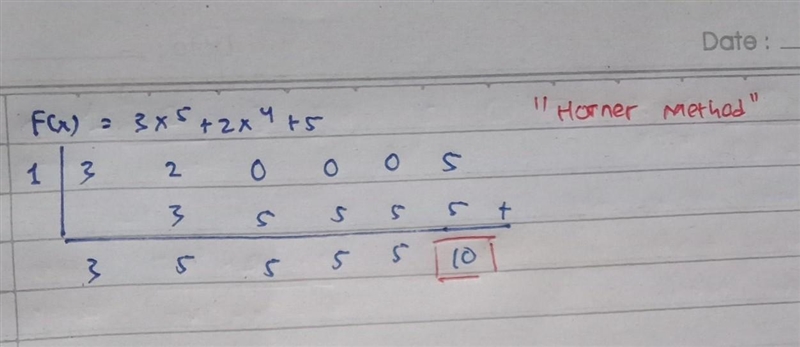 Date :
F(x) = 3x⁵ + 2x⁴ + 5 "Horner Method"
1 3 2 0 0 0 5
3 5 5 5 5 +
3 5 5 5 5 10